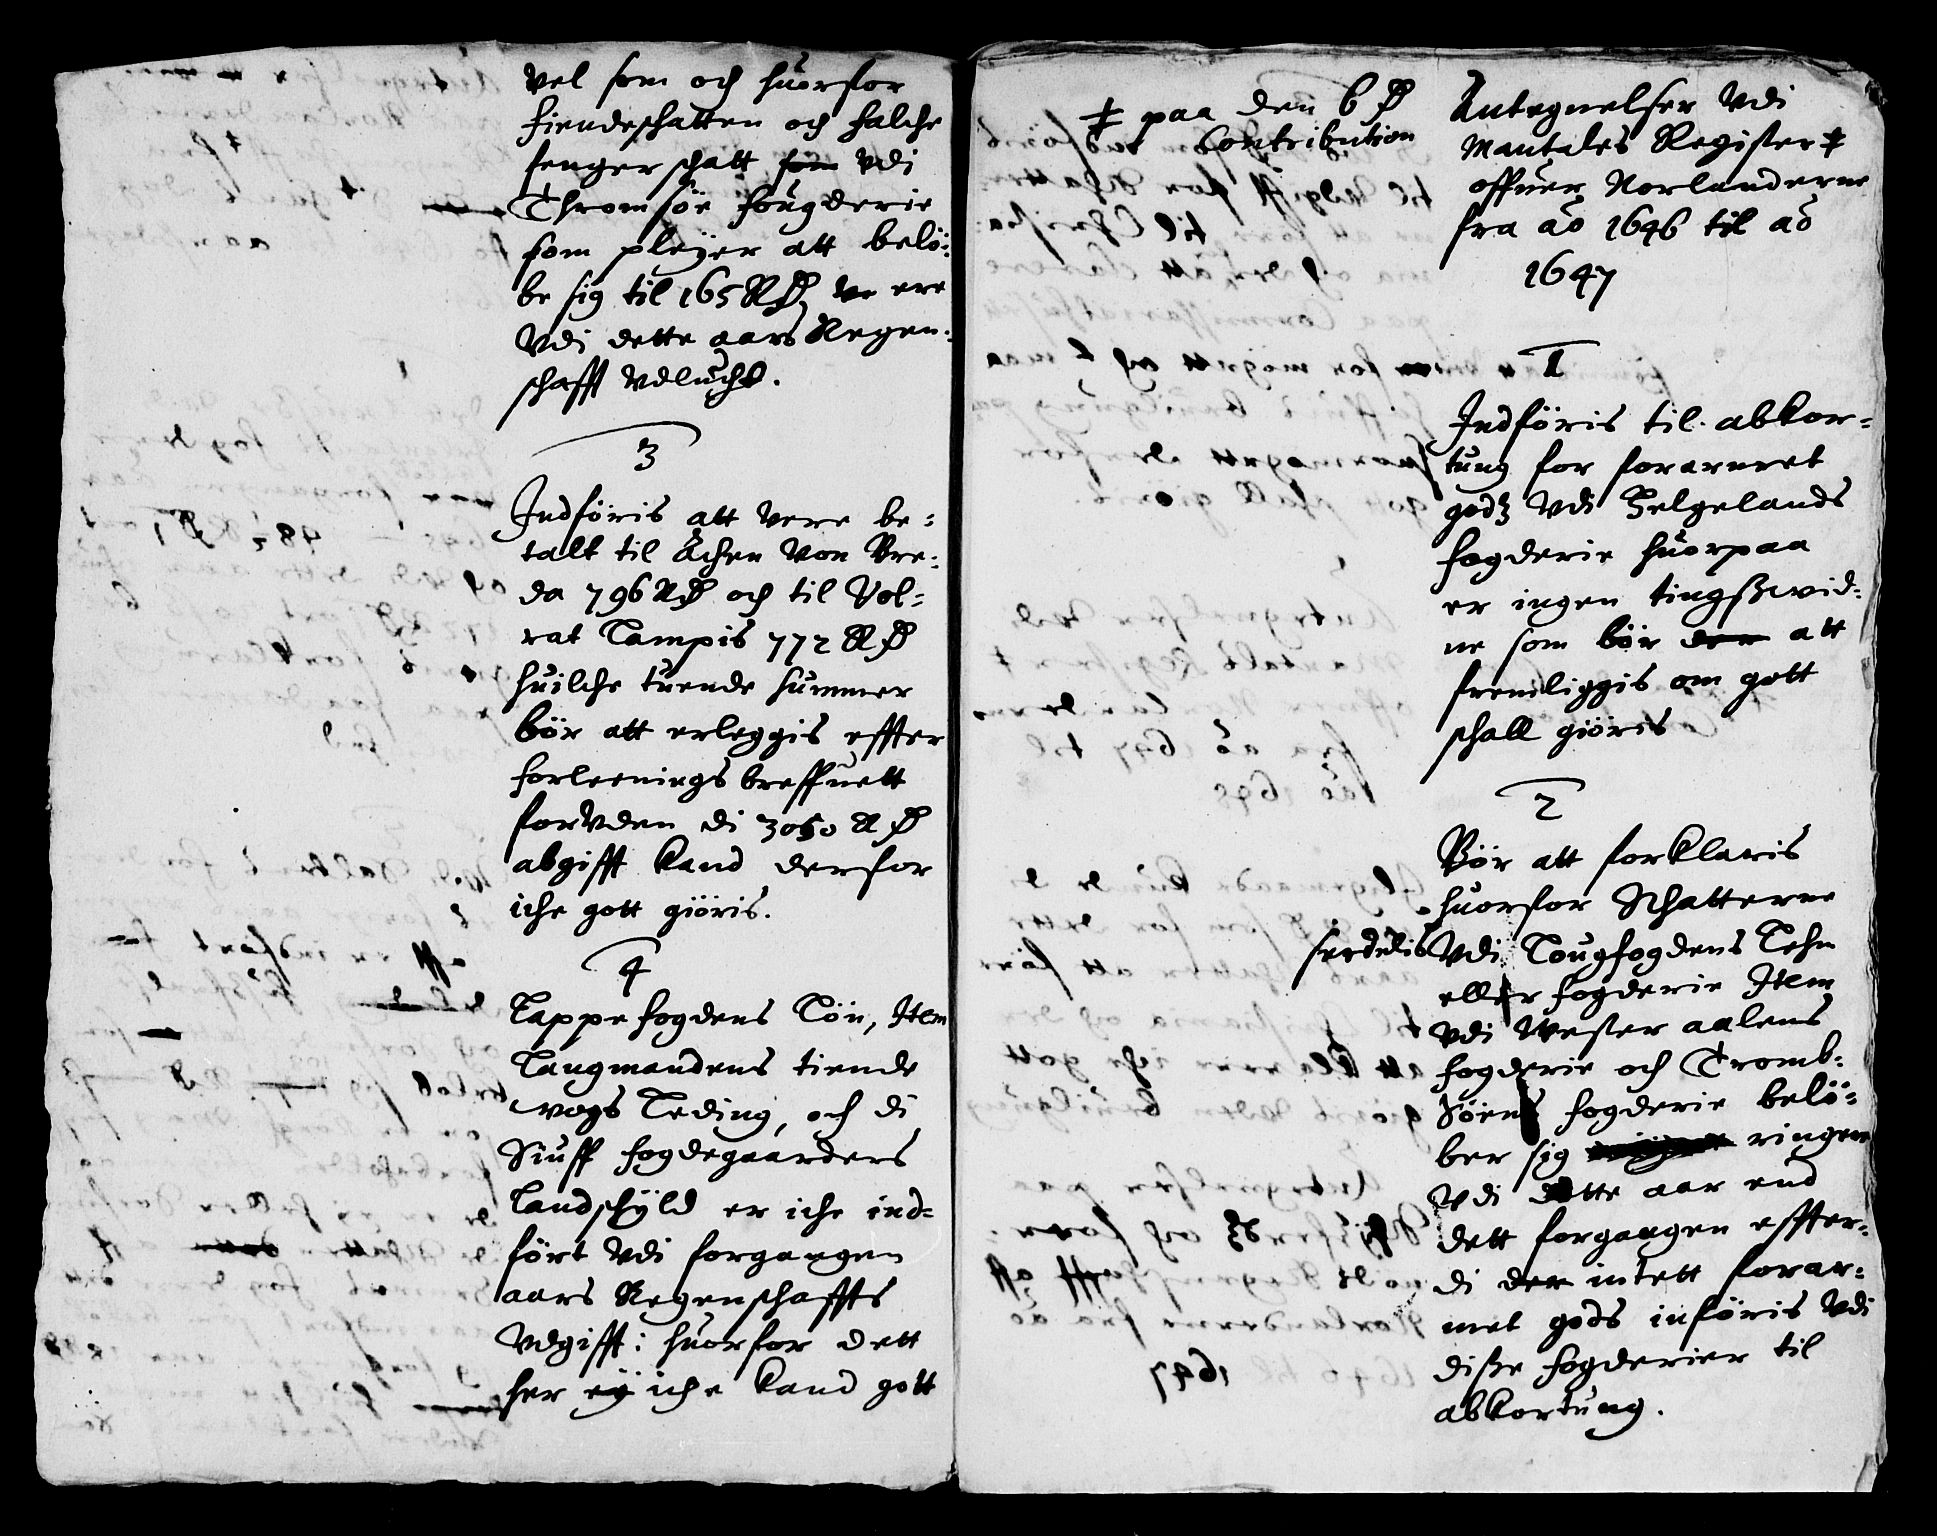 vel som och huorfor
fiendeschatten och falche
fenger schatt som vdi
Thromsöe fougderie
som pleyer att belö-
be sig til 165 RD, ve ere
vdi dette aars Regen-
schafft vdlucht.
3
Indföris att vere be-
talt til Achen von Bre-
da 796 RD och til Vol-
rat Tampis 772 RD
huilche tuende summer
bör att erleggis effter
forleenings breffuett
forvden di 3050 RD
abgifft kand derfor
iche gott giöris.
4
Lappe fogdens Lön, Item
Laugmandens tiende
vogs Leding, och di
Siuff fogdegaarders
Landschyld er iche ind-
fört vdi forgangen
aars Regenschaffts
vdgifft: huorfor dett
her ey iche kand gott
‡ paa den 6 D
Contribution
Antegnelser vdi
Mantales Register ‡
offuer Norlanderne
fra ao 1646 til ao
1647
1
Indföris til abkor-
tung for forarmet
godz vdi Helgelands
fogderie huorpaa
er ingen tingßwid-
ne som bör der att
fremliggis om gott
schall giöris
2
Bör att forklaris
huorfor Schatterne
serdelis
vdi Lougfogdens Lehn
eller fogderie Item
vdi Wester aalens
fogderie och Tromb-
söens fogderie belö-
ber sig ringere
vdi dette aar end
dett forgangen effter-
di der intett forar-
met gods införis vdi
diße fogderier til
abkortung.